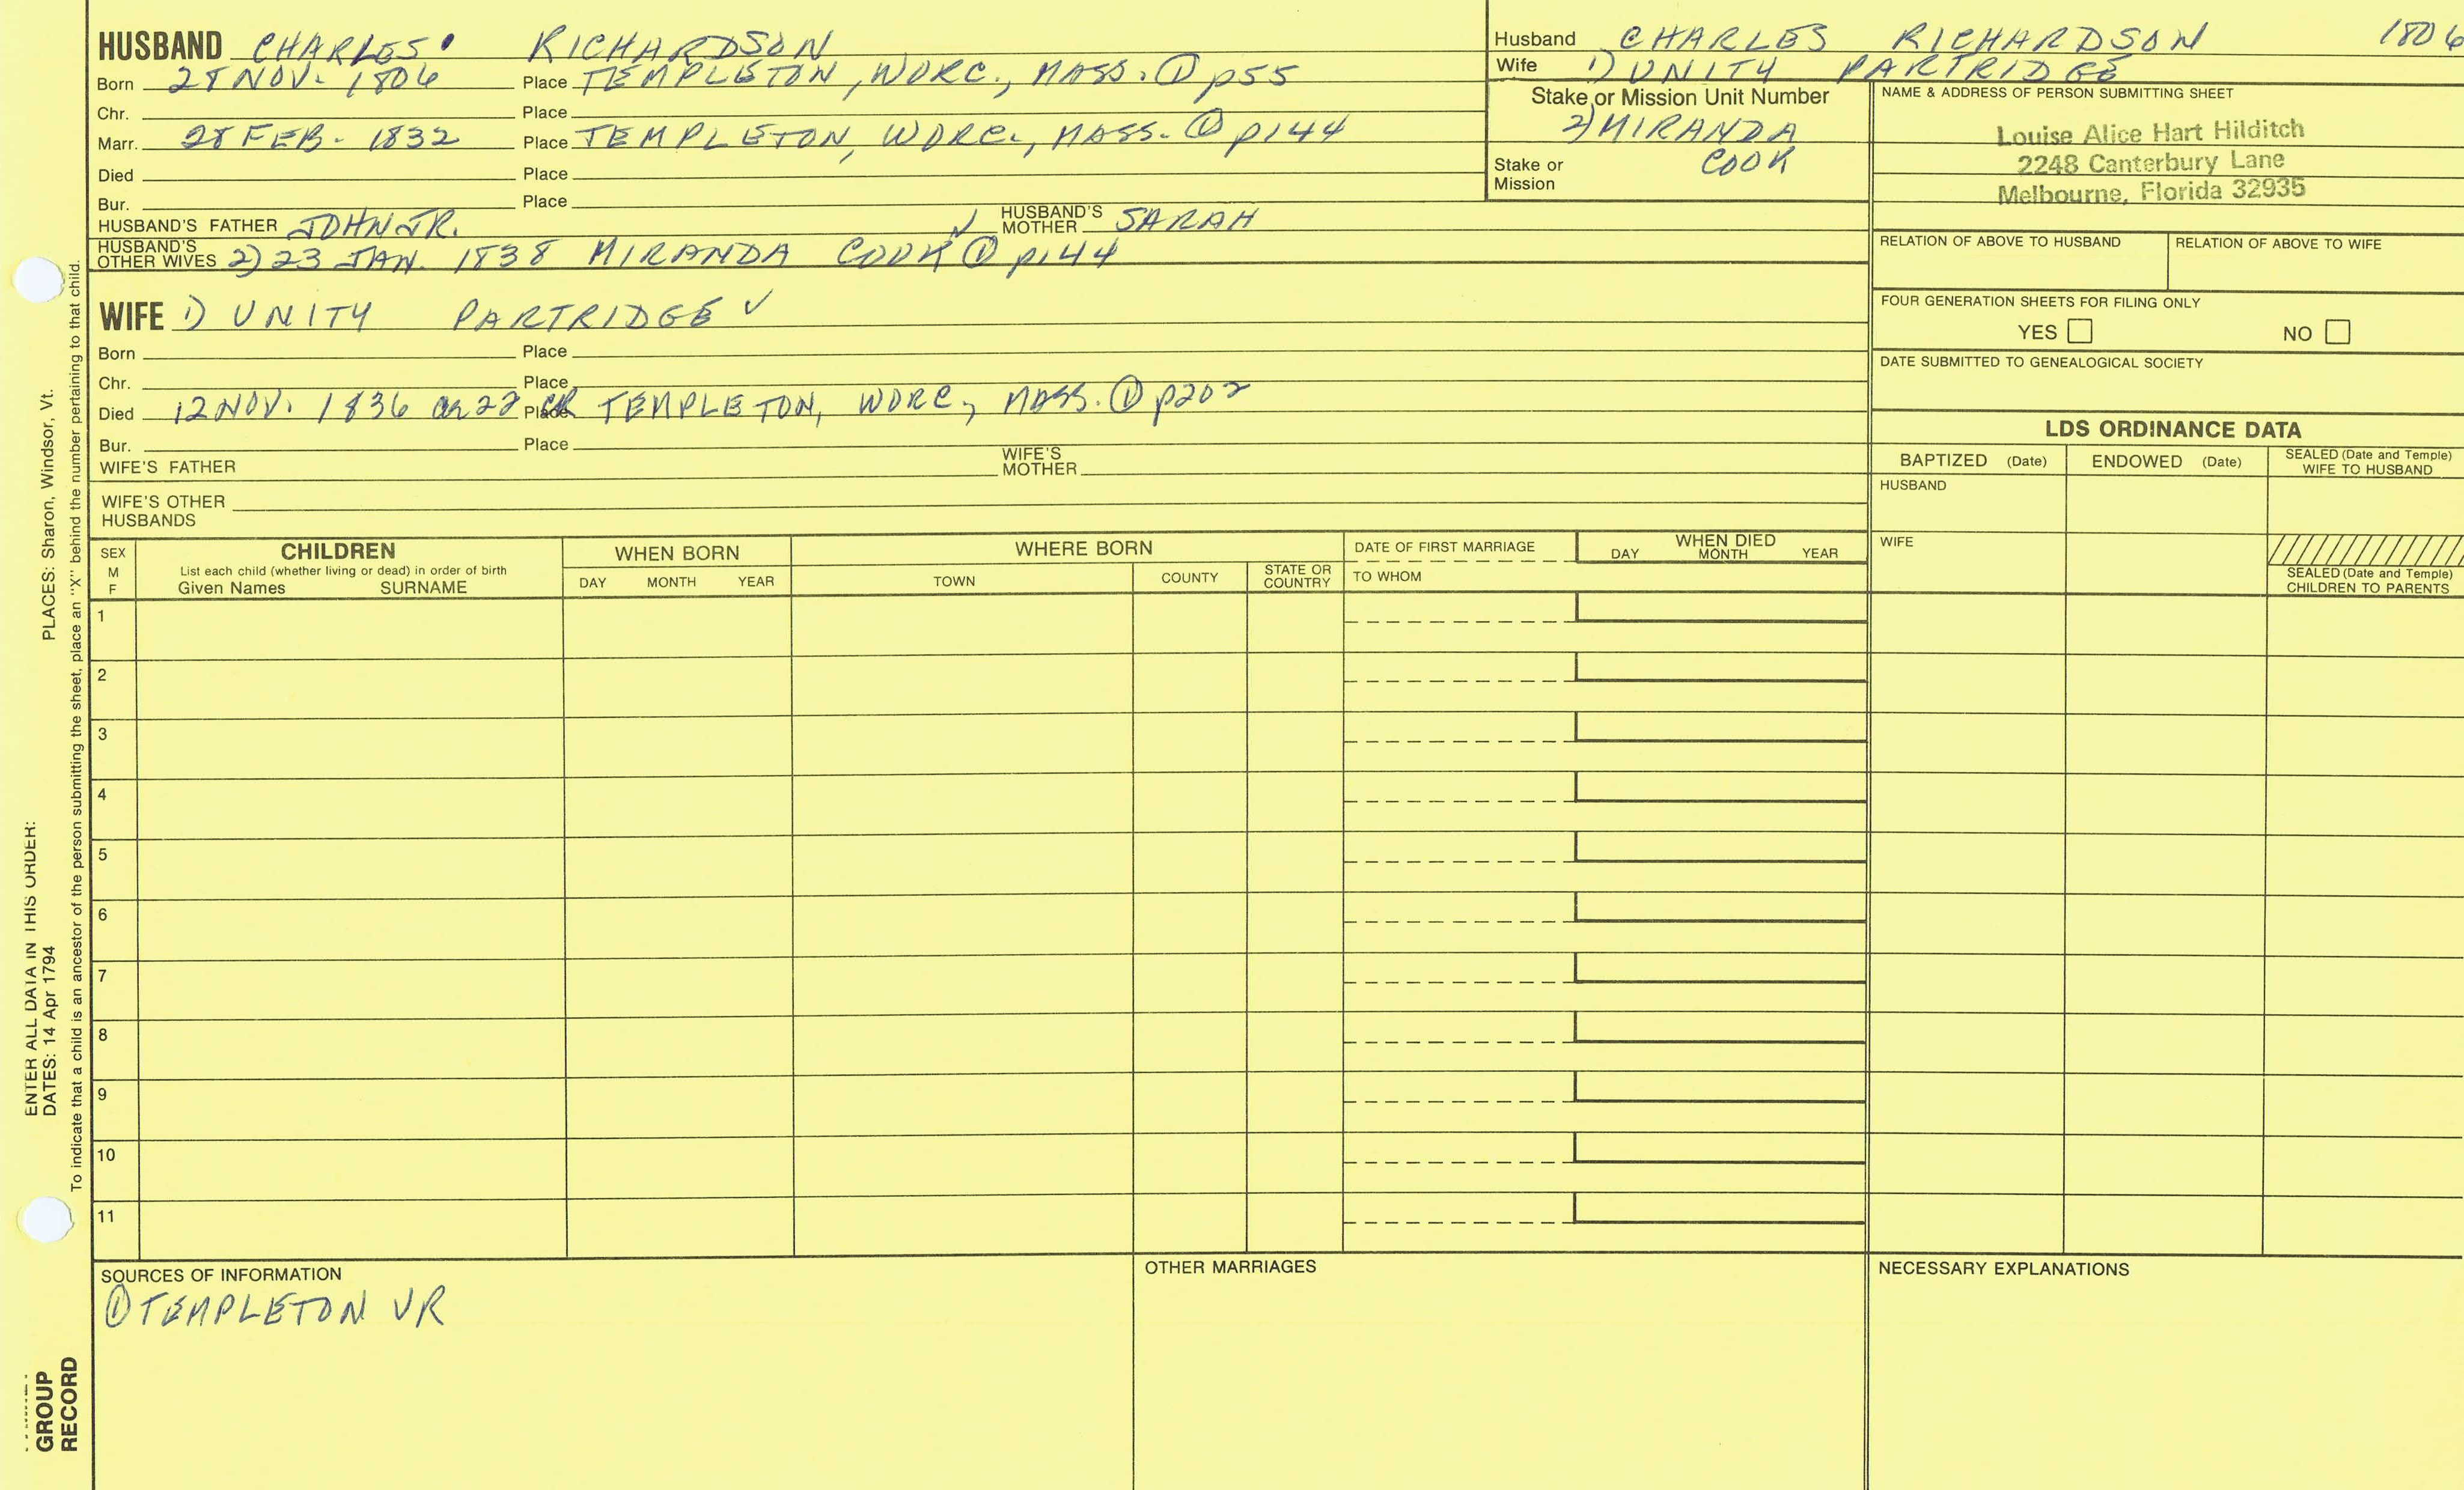 HUSBAND CHARLES RICHARDSON
Born 28 NOV. 1806 Place TEMPLETON, WORC., MASS. ① p55
Chr. Place
Marr. 28 FEB. 1832 Place TEMPLETON, WORC., MASS. ① p144
Died Place
Bur. Place
HUSBAND'S FATHER JOHN JR. ✓ HUSBAND'S MOTHER SARAH
HUSBAND'S OTHER WIVES 2) 23 JAN. 1838 MIRANDA COOK ① p144
WIFE 1) UNITY PARTRIDGE ✓
Born Place
Chr. Place
Died 12 NOV. 1836 ae 22 CR Place TEMPLETON, WORC., MASS. ① p202
Bur. Place
WIFE'S FATHER WIFE'S MOTHER
WIFE'S OTHER HUSBANDS
Husband CHARLES RICHARDSON 1806
Wife 1) UNITY PARTRIDGE
Stake or Mission Unit Number
2) MIRANDA
COOK
Stake or Mission
NAME & ADDRESS OF PERSON SUBMITTING SHEET
Louise Alice Hart Hilditch
2248 Canterbury Lane
Melbourne, Florida 32935
RELATION OF ABOVE TO HUSBAND RELATION OF ABOVE TO WIFE
FOUR GENERATION SHEETS FOR FILING ONLY
YES NO
DATE SUBMITTED TO GENEALOGICAL SOCIETY
LDS ORDINANCE DATA
BAPTIZED (Date) ENDOWED (Date) SEALED (Date and Temple) WIFE TO HUSBAND
HUSBAND
WIFE
SEALED (Date and Temple) CHILDREN TO PARENTS
SEX M F
CHILDREN
List each child (whether living or dead) in order of birth
Given Names SURNAME
WHEN BORN
DAY MONTH YEAR
WHERE BORN
TOWN COUNTY STATE OR COUNTRY
DATE OF FIRST MARRIAGE
TO WHOM
WHEN DIED
DAY MONTH YEAR
1
2
3
4
5
6
7
8
9
10
11
SOURCES OF INFORMATION
① TEMPLETON VR
OTHER MARRIAGES
NECESSARY EXPLANATIONS
ENTER ALL DATA IN THIS ORDER:
DATES: 14 Apr 1794 PLACES: Sharon, Windsor, Vt.
To indicate that a child is an ancestor of the person submitting the sheet, place an "X" behind the number pertaining to that child.
GROUP
RECORD